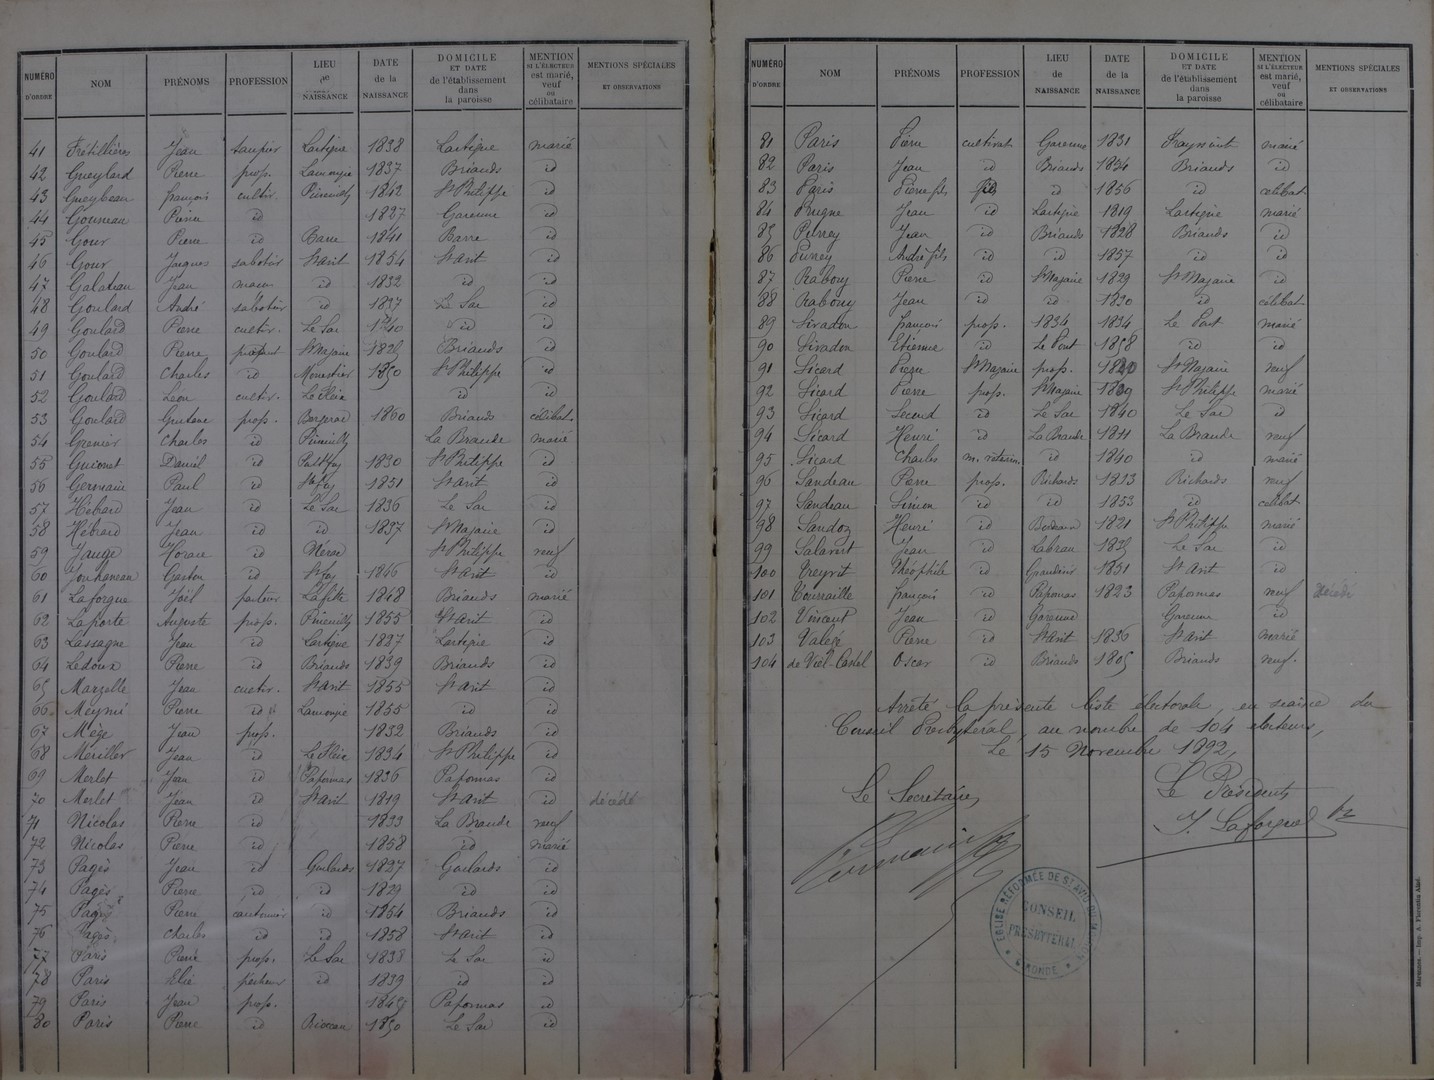 NUMÉRO D'ORDRE NOM PRÉNOMS PROFESSION LIEU de NAISSANCE DATE de la NAISSANCE DOMICILE ET DATE de l'établissement dans la paroisse MENTION SI L'ÉLECTEUR est marié, veuf ou célibataire MENTIONS SPÉCIALES ET OBSERVATIONS
41 Frétillières Jean Lartigue 1838 Lartigue marié
42 Gueylard Pierre prop. Lamongie 1837 Briands id
43 Gueybeau françois cultiv. Pineuilh 1842 St Philippe id
44 Pierre id 1827 Garenne id
45 Gour Pierre id Barre 1841 Barre id
46 Gour Jacques sabotier St Avit 1854 St Avit id
47 Jean maçon id 1832 id id
48 Goulard André sabotier id 1837 Le Sar id
49 Goulard Pierre cultiv. Le Sar 1840 id id
50 Goulard Pierre St Nazaire Briands id
51 Goulard Charles id Monestier 1850 St Philippe id
52 Goulard Léon cultiv. id id
53 Goulard Gustave prop. Bergerac 1860 Briands célibat.
54 Grenier Charles id Pineuilh La Braude marié
55 Guionet Daniel id 1830 St Philippe id
56 Germain Paul id Ste foy 1851 St Avit id
57 Hébrard Jean id Le Sar 1836 Le Sar id
58 Hébrard Jean id id 1837 St Nazaire id
59 Jauge Horace id Nérac St Philippe veuf
60 Jouhaneau Gaston id Ste foy 1846 St Avit id
61 Laforgue Joël pasteur Lafite 1848 Briands marié
62 Laporte Auguste prop. Pineuilh 1855 St Avit id
63 Lassagne Jean id Lartigue 1827 Lartigue id
64 Ledoux Pierre id Briands 1839 Briands id
65 Marzelle Jean cultiv. St Avit 1855 St Avit id
66 Meymi Pierre id Lamongie 1855 id id
67 Mège Jean prop. 1832 Briands id
68 Meriller Jean id 1834 St Philippe id
69 Merlet Jean id Paponnas 1836 Paponnas id
70 Merlet Jean id St Avit 1819 St Avit id décédé
71 Nicolas Pierre id 1833 La Braude veuf
72 Nicolas Pierre id 1858 id marié
73 Pagès Jean id Goulards 1827 Goulards id
74 Pagès Pierre id id 1829 id id
75 Pagès Pierre cantonnier id 1854 Briands id
76 Pagès Charles id id 1858 St Avit id
77 Paris Pierre prop. Le Sar 1838 Le Sar id
78 Paris Elie pêcheur id 1839 id id
79 Paris Jean prop. Paponnas id
80 Paris Pierre id 1850 Le Sar id
NUMÉRO D'ORDRE NOM PRÉNOMS PROFESSION LIEU de NAISSANCE DATE de la NAISSANCE DOMICILE ET DATE de l'établissement dans la paroisse MENTION SI L'ÉLECTEUR est marié, veuf ou célibataire MENTIONS SPÉCIALES ET OBSERVATIONS
81 Paris Pierre cultivat Garenne 1831 marié
82 Paris Jean id Briands 1834 Briands id
83 Paris Pierre fils id 1856 id célibat.
84 Prugne Jean id Lartigue 1819 Lartigue marié
85 Pivrey Jean id Briands 1828 Briands id
86 Pivrey André fils id id 1857 id id
87 Rabouy Pierre id St Nazaire 1829 St Nazaire id
88 Rabouy Jean id id 1830 id célibat
89 Sivadon françois prop. 1834 1834 Le Pont marié
90 Sivadon Etienne id Le Pont 1858 id id
91 Sicard Pierre St Nazaire prop. St Nazaire veuf
92 Sicard Pierre prop. St Nazaire St Philippe marié
93 Sicard Second id Le Sar 1840 Le Sar id
94 Sicard Henri id La Braude 1811 La Braude veuf
95 Sicard Charles id 1840 id marié
96 Sandeau Pierre prop. Richards 1813 Richards veuf
97 Sandeau Siméon id id 1853 id célibat
98 Sandoz Henri id Bordeaux 1821 St Philippe marié
99 Salavert Jean id Labrau Le Sar id
100 Treyvit Théophile id 1851 St Avit id
101 Tourraille françois id Paponnas 1823 Paponnas veuf décédé
102 Vincent Jean id Garenne Garenne id
103 Valeyé Pierre id St Avit 1836 St Avit marié
104 de Viel-Castel Oscar id Briands 1805 Briands veuf.
Arrêté la présente liste électorale, en séance du
Conseil Presbytéral, au nombre de 104 électeurs,
Le 15 Novembre 1892,
Le Secrétaire, Le Président
J. Laforgue
EGLISE RÉFORMÉE DE ST AVIT
CONSEIL
PRESBYTÉRAL
GIRONDE
Marmande. — Imp. A. Florentin Aîné.